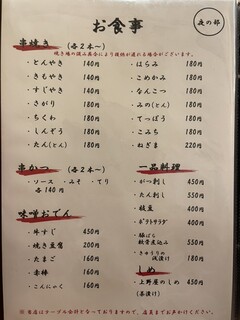 夜の部
お食事
串焼き (各2本〜)
焼き場の混み具合により提供が遅れる場合がございます。
・とんやき 140円
・きもやき 140円
・すじやき 140円
・さがり 180円
・ちくわ 180円
・しんぞう 180円
・たん(とん) 180円
・はらみ 180円
・こめかみ 180円
・なんこつ 180円
・みの(とん) 180円
・てっぽう 180円
・こみち 180円
・ねぎま 220円
串かつ (各2本〜)
・ソース ・みそ ・てり
各140円
味噌おでん
・牛すじ 450円
・焼き豆腐 200円
・たまご 160円
・赤棒 160円
・こんにゃく 160円
一品料理
・がつ刺し 450円
・たん刺し 550円
・枝豆 400円
・ポテトサラダ 400円
・豚ばら軟骨煮込み 550円
・きゅうりの浅漬け 180円
しめ
・上野屋のしめ 450円
(茶漬け)
※ 当店はテーブル会計となっておりますので、店員までお声かけください。